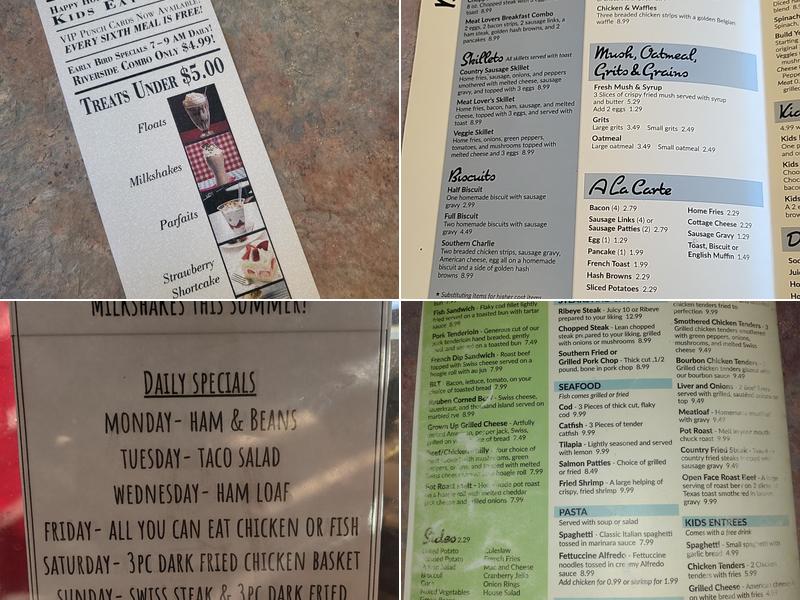 HAPPY HO
KIDS EX
VIP PUNCH CARDS NOW AVAILABLE!
EVERY SIXTH MEAL IS FREE!
EARLY BIRD SPECIALS 7-9 AM DAILY!
RIVERSIDE COMBO ONLY $4.99!
TREATS UNDER $5.00
Floats
Milkshakes
Parfaits
Strawberry
Shortcake
toast 8.99
Meat Lovers Breakfast Combo
2 eggs, 2 bacon strips, 2 sausage links, a
ham steak, golden hash browns, and 2
pancakes 8.99
Skillets All skillets served with toast
Country Sausage Skillet
Home fries, sausage, onions, and peppers
smothered with melted cheese, sausage
gravy, and topped with 3 eggs 8.99
Meat Lover's Skillet
Home fries, bacon, ham, sausage, and melted
cheese, topped with 3 eggs, and served with
toast 8.99
Veggie Skillet
Home fries, onions, green peppers,
tomatoes, and mushrooms topped with
melted cheese and 3 eggs 8.99
Biscuits
Half Biscuit
One homemade biscuit with sausage
gravy 2.99
Full Biscuit
Two homemade biscuits with sausage
gravy 4.49
Southern Charlie
Two breaded chicken strips, sausage gravy,
American cheese, egg all on a homemade
biscuit and a side of golden hash
browns 8.99
* Substituting items for higher cost items
Chicken & Waffles
Three breaded chicken strips with a golden Belgian
waffle 8.99
Mush, Oatmeal,
Grits & Grains
Fresh Mush & Syrup
3 Slices of crispy fried mush served with syrup
and butter 5.29
Add 2 eggs 1.29
Grits
Large grits 3.49 Small grits 2.49
Oatmeal
Large oatmeal 3.49 Small oatmeal 2.49
A La Carte
Bacon (4) 2.79
Sausage Links (4) or
Sausage Patties (2) 2.79
Egg (1) 1.29
Pancake (1) 1.99
French Toast 1.99
Hash Browns 2.29
Sliced Potatoes 2.29
Home Fries 2.29
Cottage Cheese 2.29
Sausage Gravy 1.29
Toast, Biscuit or
English Muffin 1.49
MILKSHAKES THIS SUMMER!
DAILY SPECIALS
MONDAY- HAM & BEANS
TUESDAY- TACO SALAD
WEDNESDAY- HAM LOAF
FRIDAY- ALL YOU CAN EAT CHICKEN OR FISH
SATURDAY- 3PC DARK FRIED CHICKEN BASKET
SUNDAY- SWISS STEAK & 3PC DARK FRIED
Fish Sandwich - Flaky cod fillet lightly
fried served on a toasted bun with tartar
sauce 8.99
Pork Tenderloin - Generous cut of our
pork tenderloin hand breaded, gently
and served on a toasted bun 7.49
French Dip Sandwich - Roast beef
topped with Swiss cheese served on a
hoagie roll with au jus 7.99
BLT - Bacon, lettuce, tomato, on your
choice of toasted bread 7.99
Reuben Corned Beef - Swiss cheese,
sauerkraut, and thousand island served on
marbled rye 8.99
Grown Up Grilled Cheese - Artfully
American, pepper jack, Swiss,
grilled on your choice of bread 7.49
Sides 2.29
Coleslaw
French Fries
Mac and Cheese
Cranberry Jello
Onion Rings
House Salad
Ribeye Steak - Juicy 10 oz Ribeye
prepared to your liking 12.99
Chopped Steak - Lean chopped
steak prepared to your liking, grilled
with onions or mushrooms 8.99
Southern Fried or
Grilled Pork Chop - Thick cut ,1/2
pound, bone in pork chop 8.99
SEAFOOD
Fish comes grilled or fried
Cod - 3 Pieces of thick cut, flaky
cod 9.99
Catfish - 3 Pieces of tender
catfish 9.99
Tilapia - Lightly seasoned and served
with lemon 9.99
Salmon Patties - Choice of grilled
or fried 8.49
Fried Shrimp - A large helping of
crispy, fried shrimp 9.99
PASTA
Served with soup or salad
Spaghetti - Classic Italian spaghetti
tossed in marinara sauce 7.99
Fettuccine Alfredo - Fettuccine
noodles tossed in creamy Alfredo
sauce 8.99
Add chicken for 0.99 or shrimp for 1.99
chicken tenders fried to
perfection 9.99
Smothered Chicken Tenders - 3
Grilled chicken tenders smothered
with green peppers, onions,
mushrooms, and melted Swiss
cheese 9.49
Bourbon Chicken Tenders
Grilled chicken tenders
our bourbon sauce 9.49
Liver and Onions
Meatloaf - Homemade
with gravy 9.49
Pot Roast - Melt in your mouth
chuck roast 9.99
Country Fried Steak
country fried steaks
sausage gravy 9.49
Open Face Roast Beef - A large
serving of roast beef on 2 slices of
Texas toast smothered in
gravy 9.49
KIDS ENTREES
Comes with a free drink
Spaghetti - Small spaghetti with
garlic bread 4.99
Chicken Tenders - 2 Chicken
tenders with fries 5.99
Grilled Cheese - American
on white bread with fries